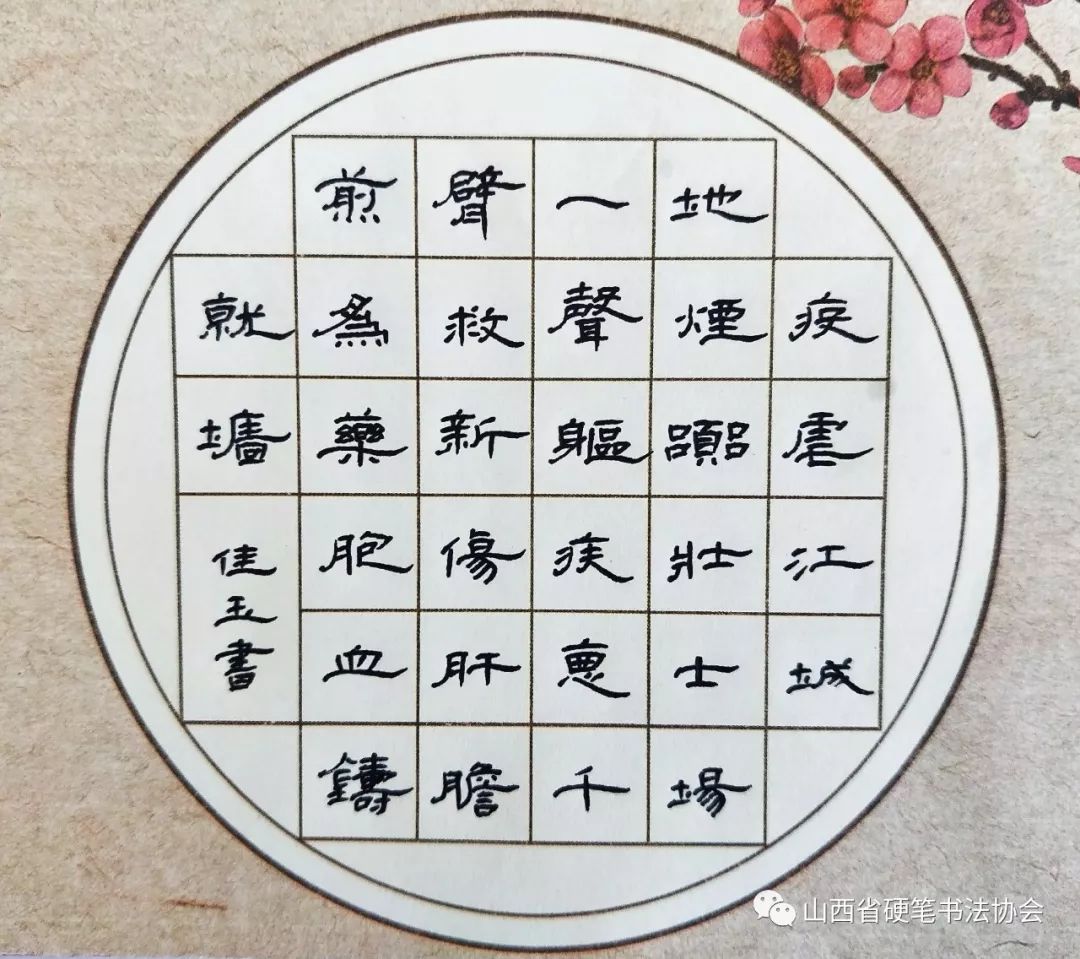 疫虐江城
地煙囂壯士場
一聲軀疾惠千
臂救新傷肝膽
煎為藥胞血鑄
就墻
佳玉書
山西省硬笔书法协会